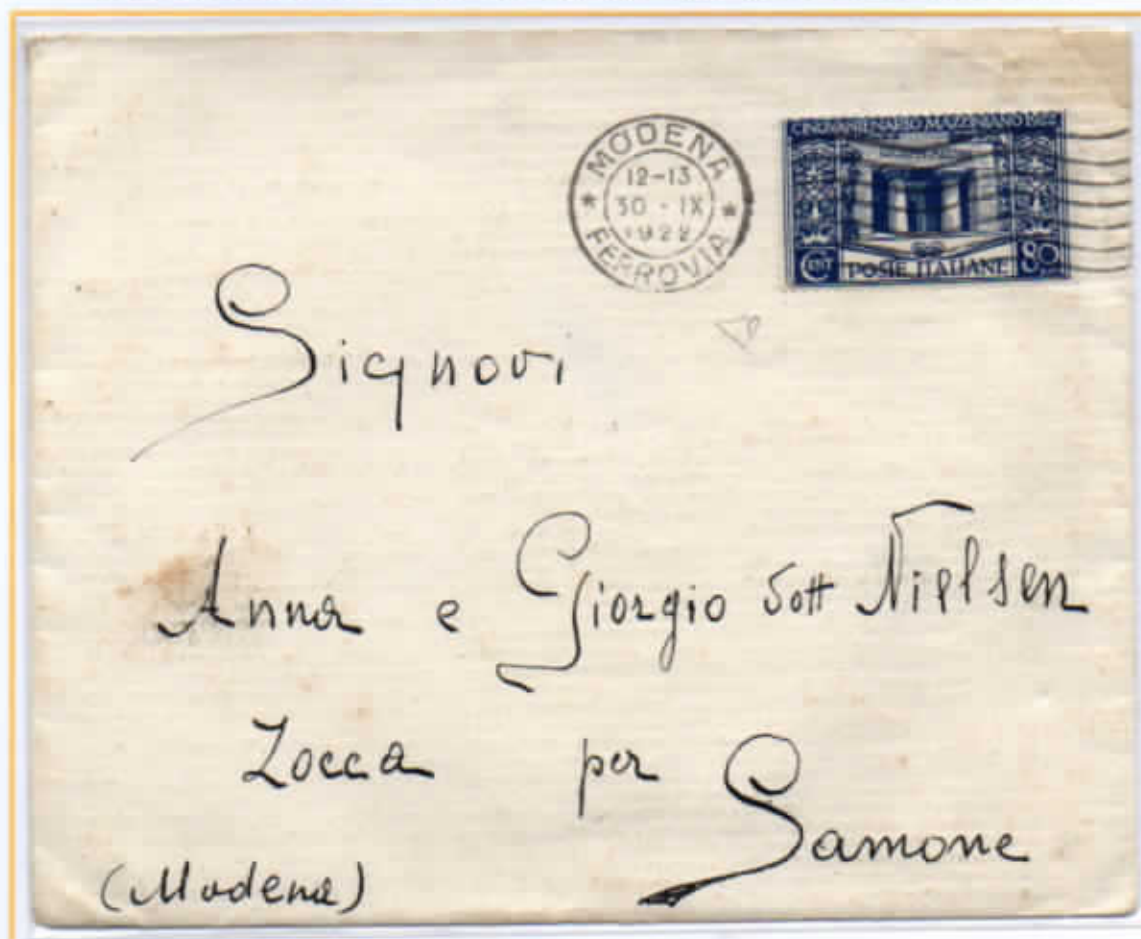 MODENA
12-13
30 - IX
1922
FERROVIA
CINQVANTENARIO MAZZINIANO 1922
CENT POSTE ITALIANE 80
Signori
Anna e Giorgio Dott Nielsen
Zocca per
Samone
(Modena)